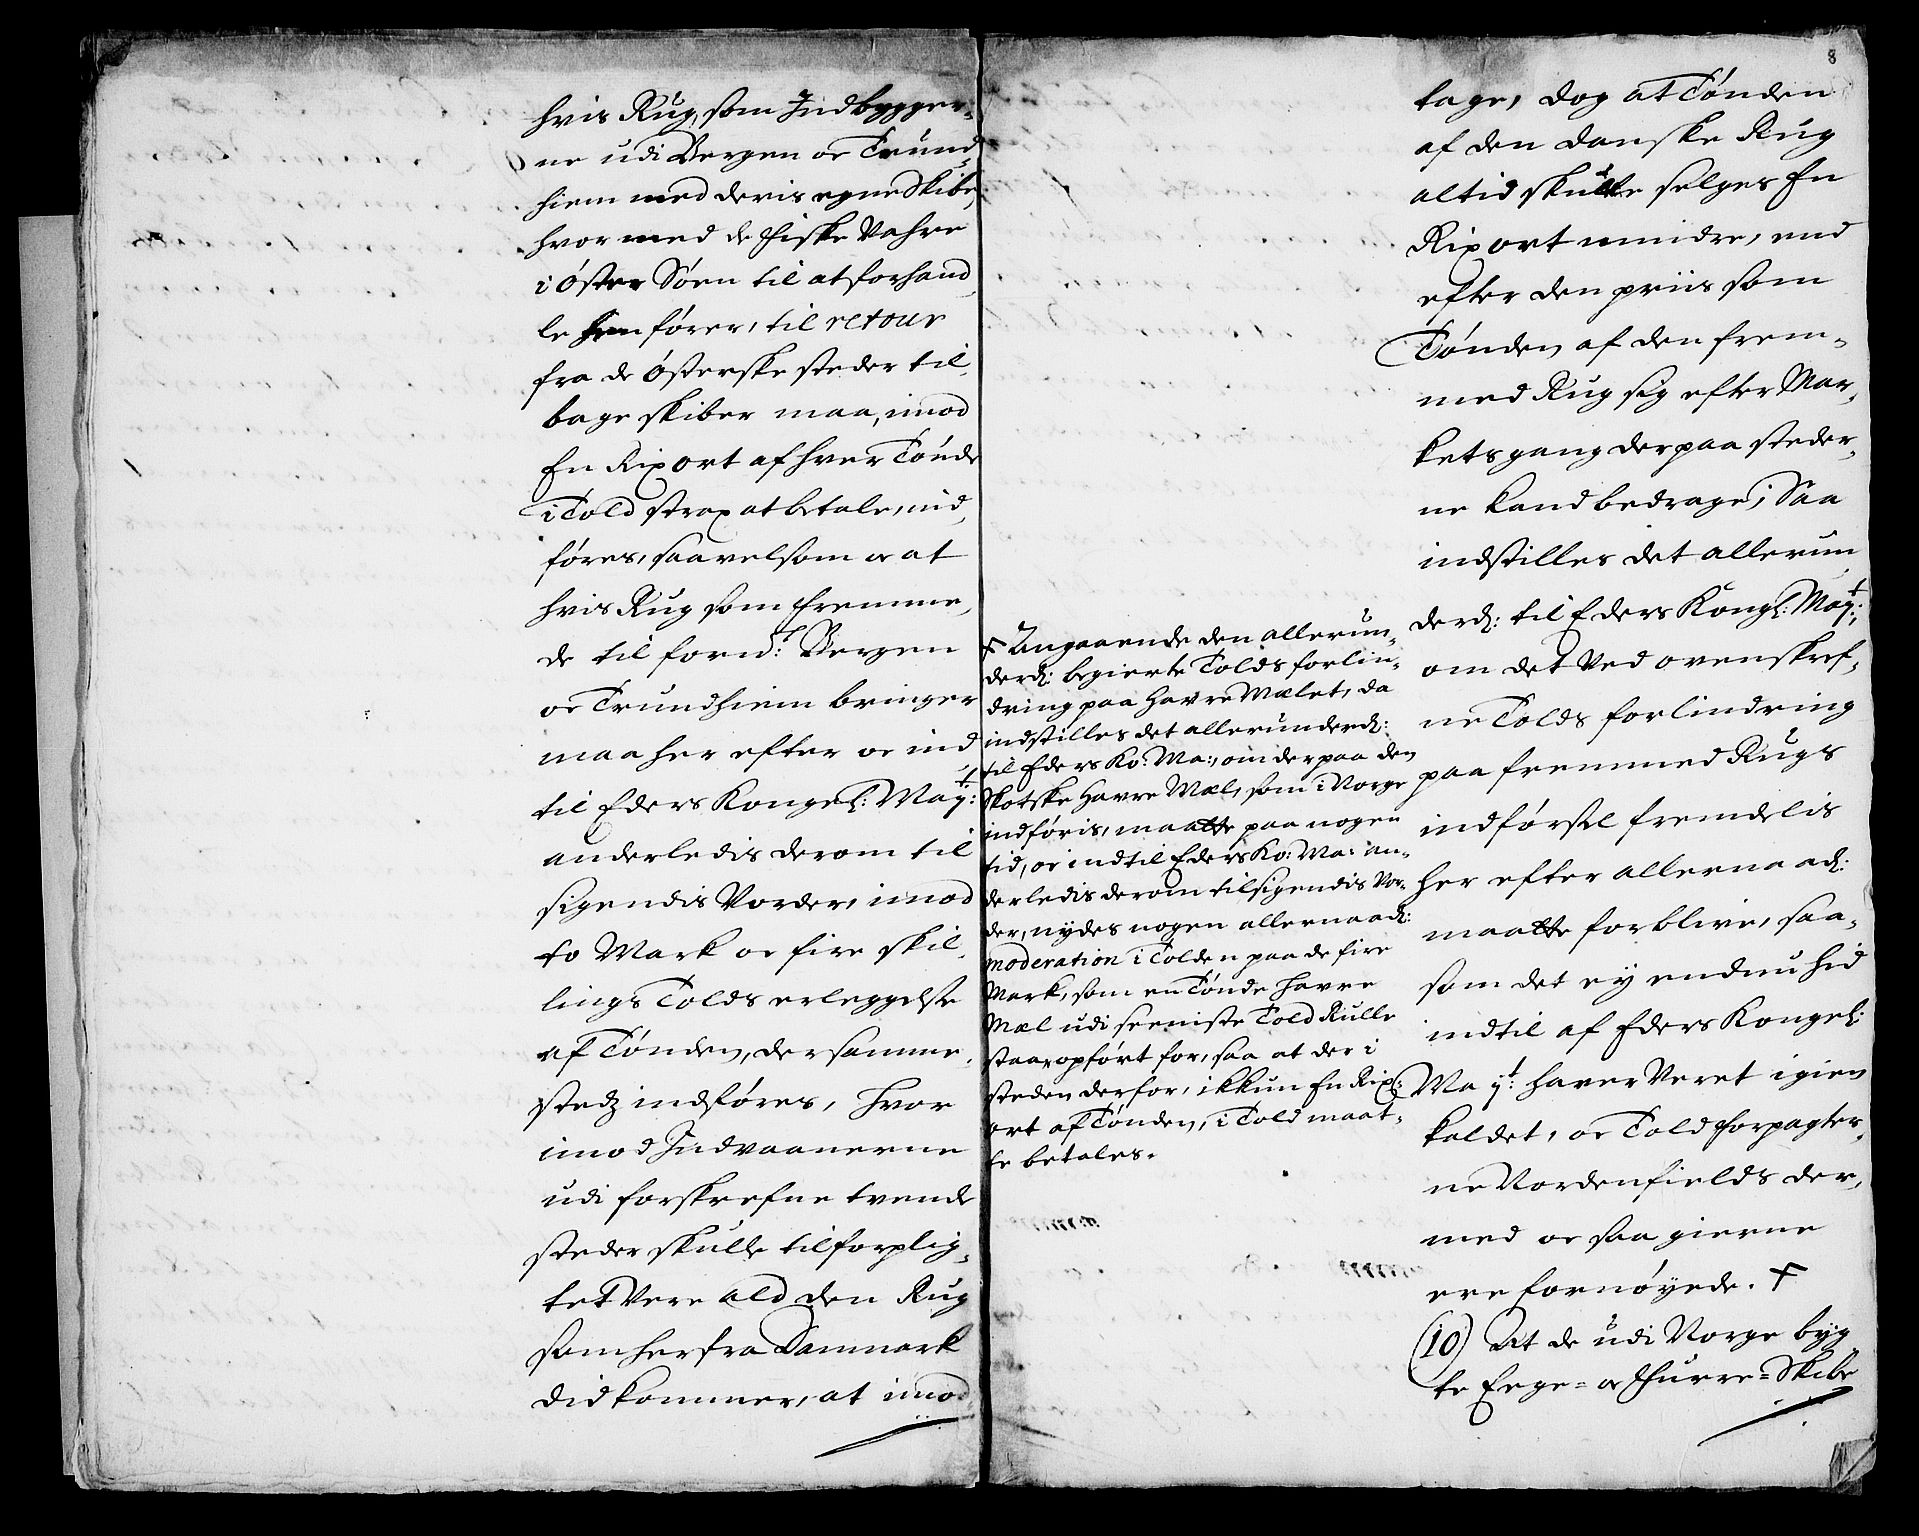 hvis Rug, som Indbygger-
ne udi Bergen oc Trund-
hiem med deris egne Skibe,
hvor med de Fiske Vahre
i Øster Søen til at forhand-
le hen fører, til retour
fra de Østerske steder til-
bage skiber maa, imod
En Rixort af hver Tønde
i Told strax at betale, ind-
føres, saavelsom oc at
hvis Rug som Fremme-
de til fornt: Bergen
oc Trundhiem bringer
maa her efter oc ind
til Eders Kongel: Mayt:
anderledis derom til
sigendis Vorder, imod
to Mark oc fire skil-
lings Tolds erleggelse
af Tønden, der samme-
stedz indføres, hvor
imod Indvaanerne
udi forskrefne tvende
steder skulle tilforplig-
tet Vere ald den Rug
som her fra Danmark
did kommer, at imod-
8
tage, dog at Tønden
af den danske Rug
altid skulle selges En
Rixort mindre, end
efter den priis som
Tønden af den frem-
med Rug sig efter Mar-
kets gang der paa steder-
ne kand bedrage; Saa
indstilles det allerun-
derd: til Eders Kongl: Mayt:,
om det Ved ovenskref-
ne Tolds forlindring
paa fremmed Rugs
indførsel fremdelis
her efter allernaad:
maatte forblive, saa-
som det ey endnu hid
indtil af Eders Kongel:
Mayt: haver Veret igien
kaldet, oc Told Forpagter-
ne Nordenfields der-
med oc saa gierne
ere fornøyede. +
(10) At de udi Norge byg-
te Eege= oc Furre=Skibe
+ Angaaende den allerun-
derd: begierte Tolds forlin-
dring paa Havre Mælet, da
indstilles det allerunderd:
til Eders Ko: Ma:, om der paa den
Skotske Havre Mæl, som i Norge
indføris, maatte paa nogen
tid, oc indtil Eders Ko: Ma: an-
derledis derom tilsigendis Vor-
der, nydes nogen allernaad:
moderation i Tolden paa de fire
Mark, som en Tønde Havre
Mæl udi seeniste Told Rulle
staar opført for, saa at der i
steden derfor, ikkun En Rix-
ort af Tønden, i Told maat-
te betales.